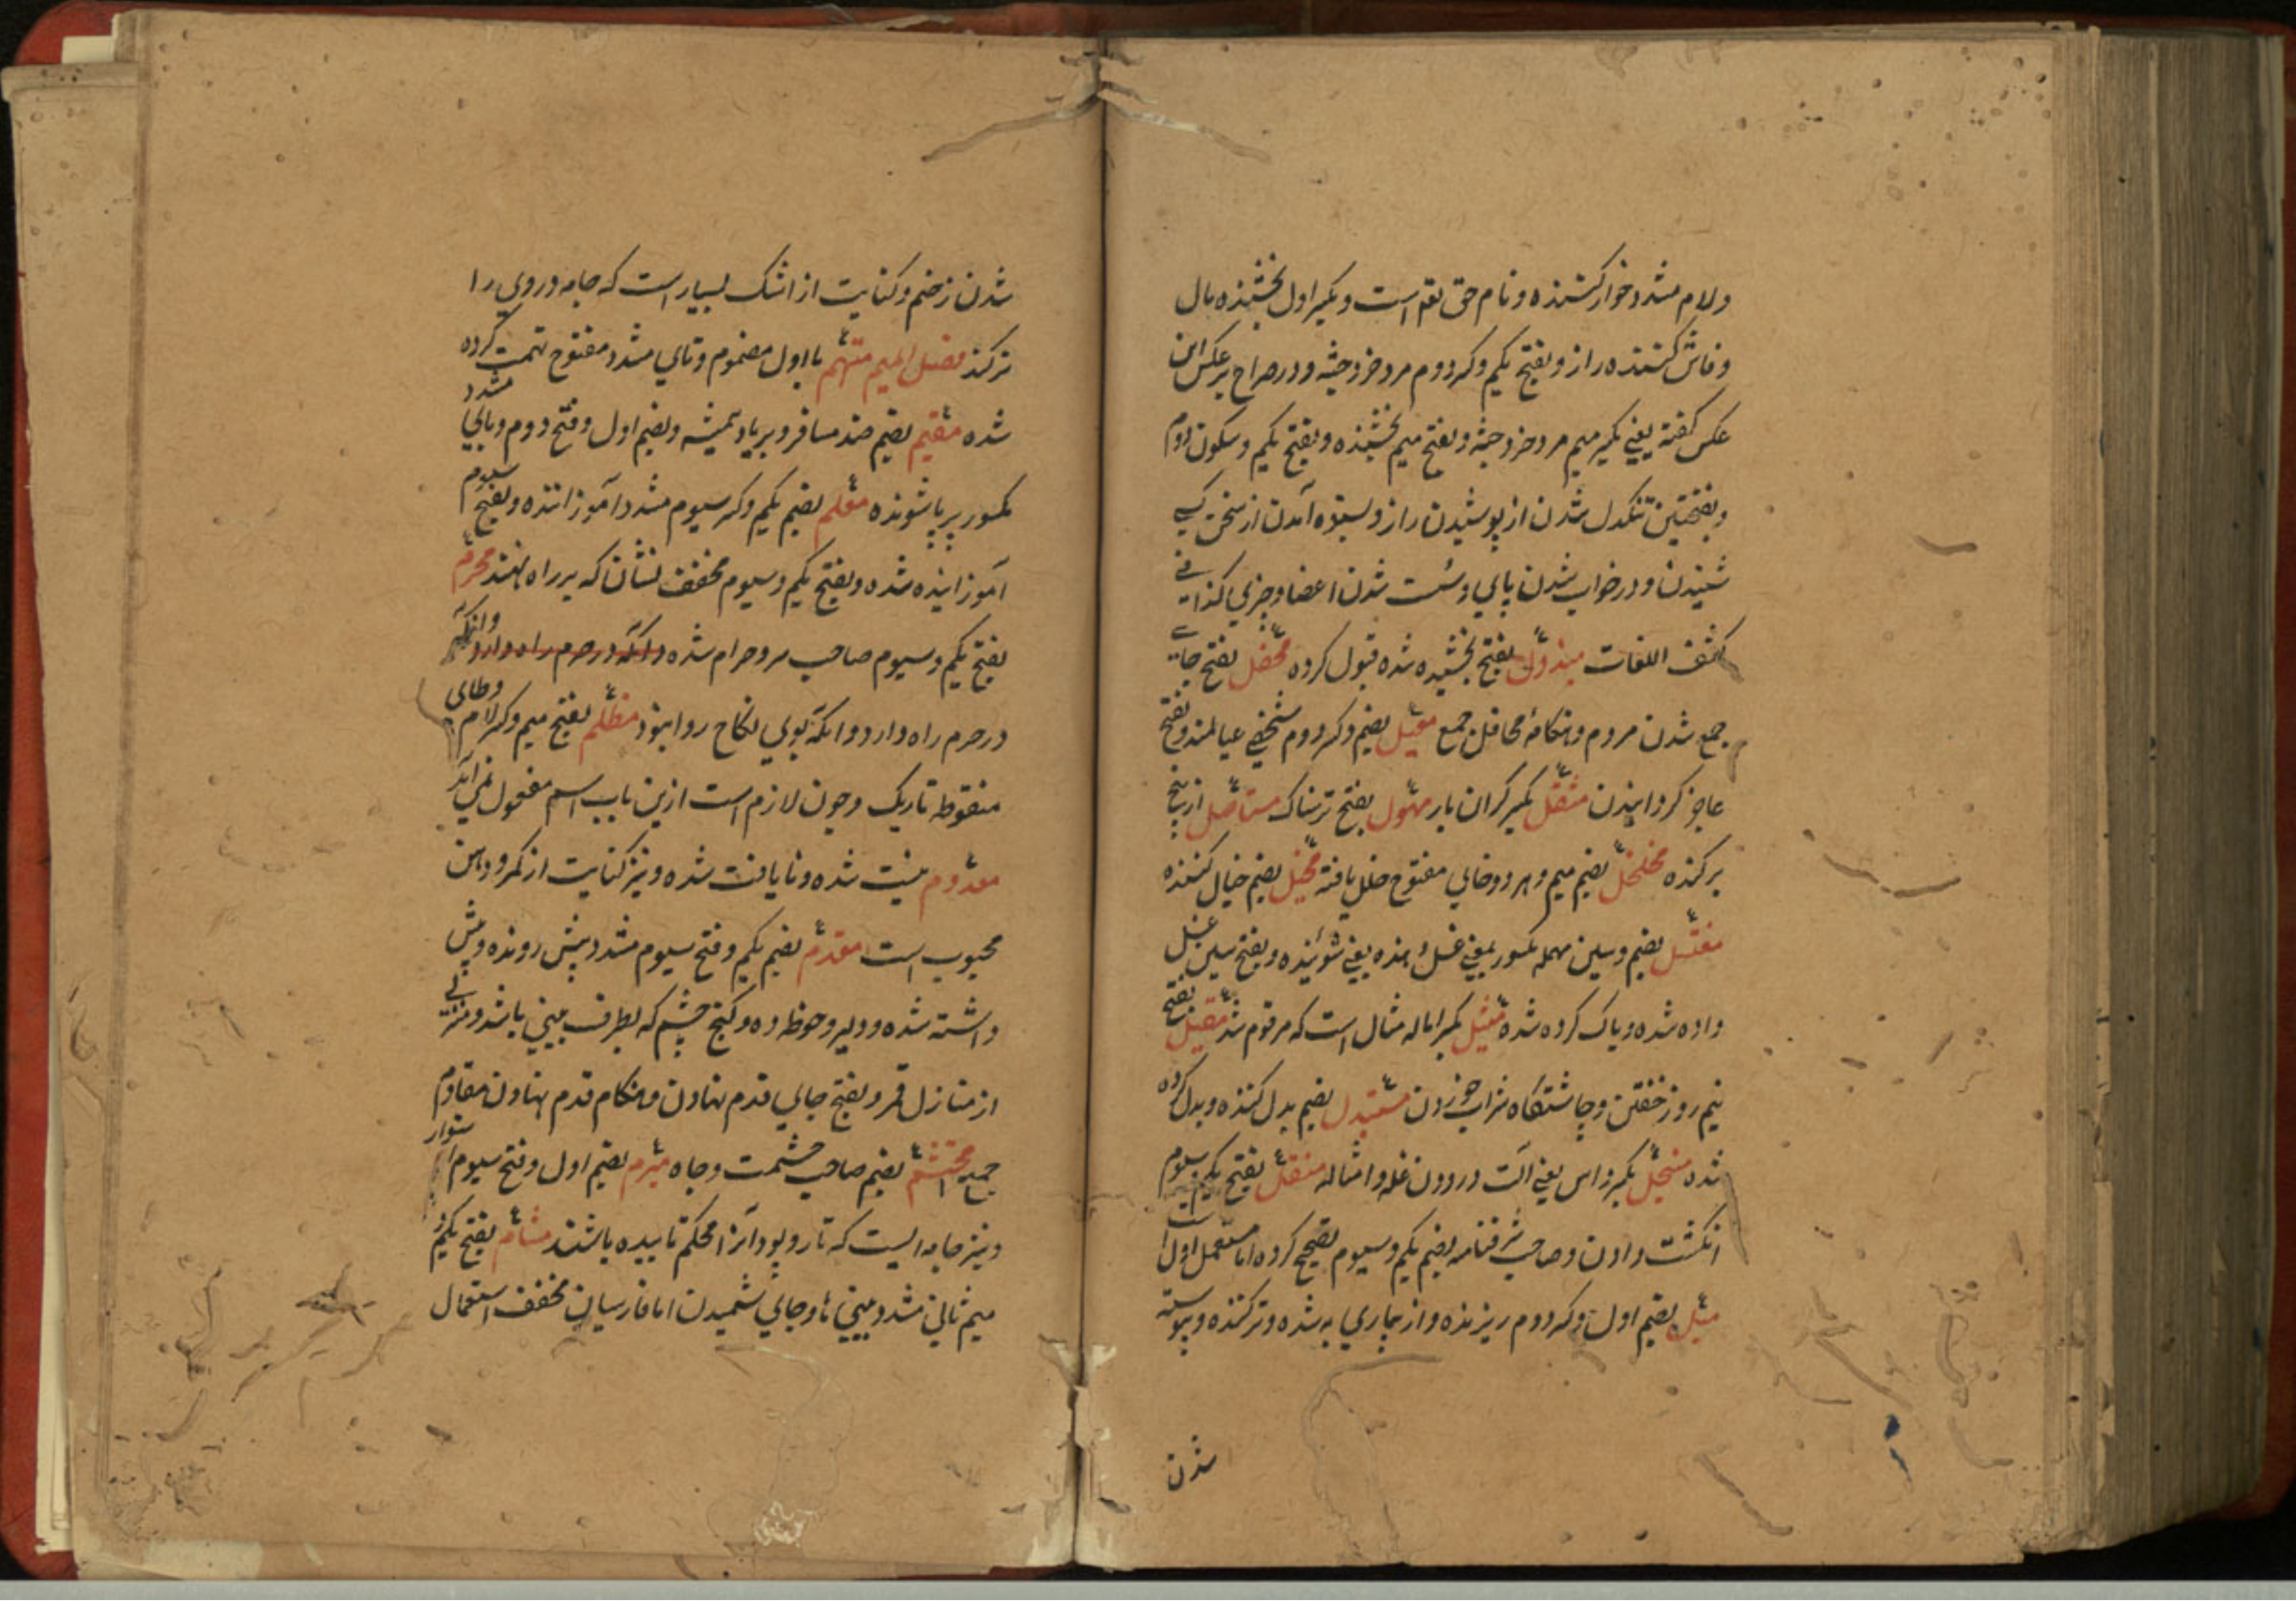 ولام مشدد خوار کننده و نام حق تعم است و بکسر اول بخشنده مال
و فاش کننده راز و بفتح یکم و کسر دوم مرد خرد جثه و در صراح بر عکس این
عکس گفته یعنی بکسر میم مرد خرد جثه و بفتح میم بخشنده و بفتح یکم و سکون دوم
و بفتحتین تنکدل شدن از پوشیدن راز و بستوه آمدن از سخن کسی
شنیدن و در خواب شدن پای و سست شدن اعضا و چیزی کذا فی
کشف اللغات مبذول بفتح بخشیده شده قبول کرده محفل بفتح جای
جمع شدن مردم و هنکامه محافل جمع معیل بضم و کسر دوم شخصی عیالمند و بفتح
عاجز کردانیدن مثقل بکسر کران بار مهول بفتح ترسناک مستاصل از بیخ
برکنده مخلخل بضم میم و هر دو خای مفتوح خلل یافته مخیل بضم خیال کننده
مغتسل بضم و سین مهمله مکسور بمعنی غسل دهنده یعنی شوینده و بفتح سین غسل
داده شده و پاک کرده شده مثیل بکسر اماله مثال است که مرقوم شد مقیل بفتح
نیم روز خفتن و چاشتکاه شراب خوردن مستبدل بضم بدل کننده و بدل کرده
شده منجل بکسر داس یعنی آلت درودن غله و امثاله منقل بفتح یکم و سیوم
انکشت دادن و صاحب شرفنامه بضم یکم و سیوم تصحیح کرده اما مستعمل اول است
مبل بضم اول و کسر دوم ریزنده و از بیماری به شده و تر کننده و پیوسته
شدن
شدن زخم و کنایت از اشک بسیار است که جامه و روی را
تر کند فصل المیم متهم با اول مضموم و تای مشدد مفتوح تهمت کرده
شده مقیم بضم ضد مسافر و بر پا و همیشه و بضم اول و فتح دوم و یای مشدد
مکسور بر پا شونده معلم بضم یکم و کسر سیوم مشدد آموزاننده و بفتح سیوم
آموزانیده شده و بفتح یکم و سیوم مخفف نشان که بر راه نهند محرم
بفتح یکم و سیوم صاحب سر و حرام شده و آنکه در حرم راه دارد و آنکه
در حرم راه دارد و آنکه بوی نکاح روا نبود مظلم بفتح میم و کسر لام و ظای
منقوطه تاریک و چون لازم است ازین باب اسم مفعول نمی آید
معدوم نیست شده و نایافت شده و نیز کنایت از کمر و دهن
محبوب است مقدم بضم یکم و فتح سیوم مشدد پیش رونده و پیش
داشته شده و دلیر و حوظه ده و کنج چشم که بطرف بینی باشد و منزلی
از منازل قمر و بفتح جای قدم نهادن و هنکام قدم نهادن مقادم
جمع محتشم بضم صاحب حشمت و جاه مبرم بضم اول و فتح سیوم استوار
و نیز جامه ایست که تار و پود آنرا محکم تابیده باشند مشام بفتح یکم و
میم ثانی مشدد بینی ها و جای شمیدن اما فارسیان مخفف استعمال